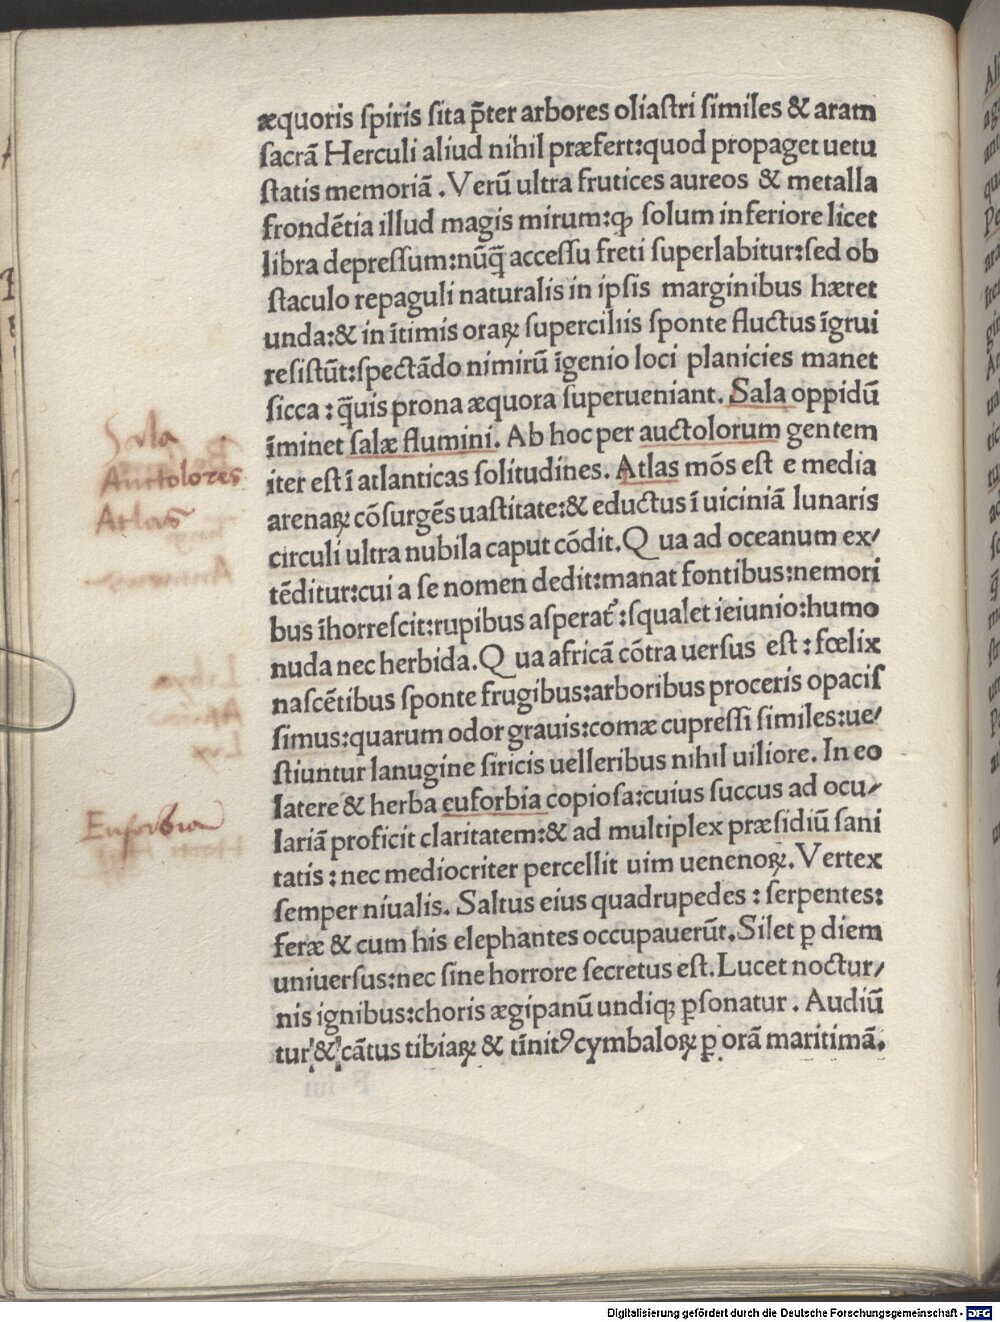 æquoris ſpiris ſita p̃ter arbores oliaſtri ſimiles & aram
ſacrã Herculi aliud nihil præfert:quod propaget uetu
ſtatis memoriã . Verũ ultra frutices aureos & metalla
frondẽtia illud magis mirum:ꝙ ſolum inferiore licet
libra depreſſum:nũq̃ acceſſu freti ſuperlabitur:ſed ob
ſtaculo repaguli naturalis in ipſis marginibus hæret
unda:& in ĩtimis oraꝝ ſuperciliis ſponte fluctus ĩgrui
reſiſtũt:ſpectãdo nimirũ ĩgenio loci planicies manet
ſicca : q̃uis prona æquora ſuperueniant. Sala oppidũ
ĩminet ſalæ flumini. Ab hoc per auctolorum gentem
iter eſt ĩ atlanticas ſolitudines. Atlas mõs eſt e media
arenaꝝ cõſurgẽs uaſtitate:& eductus ĩ uiciniã lunaris
circuli ultra nubila caput cõdit. Q ua ad oceanum ex/
tẽditur:cui a ſe nomen dedit:manat fontibus:nemori
bus ĩhorreſcit:rupibus aſperat᷑:ſqualet ieiunio:humo
nuda nec herbida. Q ua africã cõtra uerſus eſt : fœlix
naſcẽtibus ſponte frugibus:arboribus proceris opaciſ
ſimus:quarum odor grauis:comæ cupreſſi ſimiles:ue/
ſtiuntur lanugine ſiricis uelleribus nihil uiliore. In eo
latere & herba euforbia copioſa:cuius ſuccus ad ocu/
lariã proficit claritatem:& ad multiplex præſidiũ ſani
tatis : nec mediocriter percellit uim uenenoꝝ. Vertex
ſemper niualis. Saltus eius quadrupedes : ſerpentes:
feræ & cum his elephantes occupauerũt. Silet ꝑ diem
uniuerſus:nec ſine horrore ſecretus eſt. Lucet noctur/
nis ignibus:choris ægipanũ undiqꝫ ꝑſonatur . Audiũ
tur & cãtus tibiaꝝ & tĩnitꝰ cymbaloꝝ ꝑ orã maritimã.
Sala
Auctolores
Atlas
Euforbia
Digitalisierung gefördert durch die Deutsche Forschungsgemeinschaft - DFG